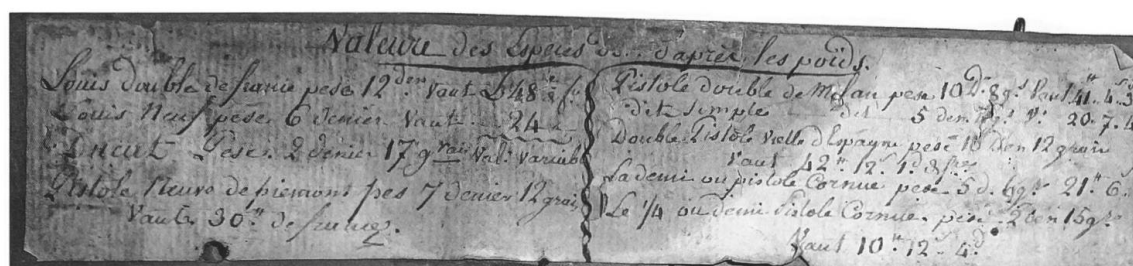 Valeure des Espèces d'après les poids.
Louis double de france pèse 12 den vaut L 48
Louis Neuf pèse 6 denier vaut 24
Ducat Pese 2 denier 17 grain Val. variab
Pistole Neuve de piemont pes 7 denier 12 grai
Vaut 30 tt de france.
Pistole double de Milan pese 10 D. 8 gr. Vaut 41 tt 4 s
dit simple dit 5 den 20. 7. 4
Double Pistole vielle d'Espagne pese 10 Den 12 grain
Vaut 42 tt 12 s 1 d
La demi ou pistole Cornue pese 5 d. 6 gr. 21 tt 6.
Le 1/4 ou demi Pistole Cornue pese 2 den 15 gr.
Vaut 10 tt 12 s 4 d